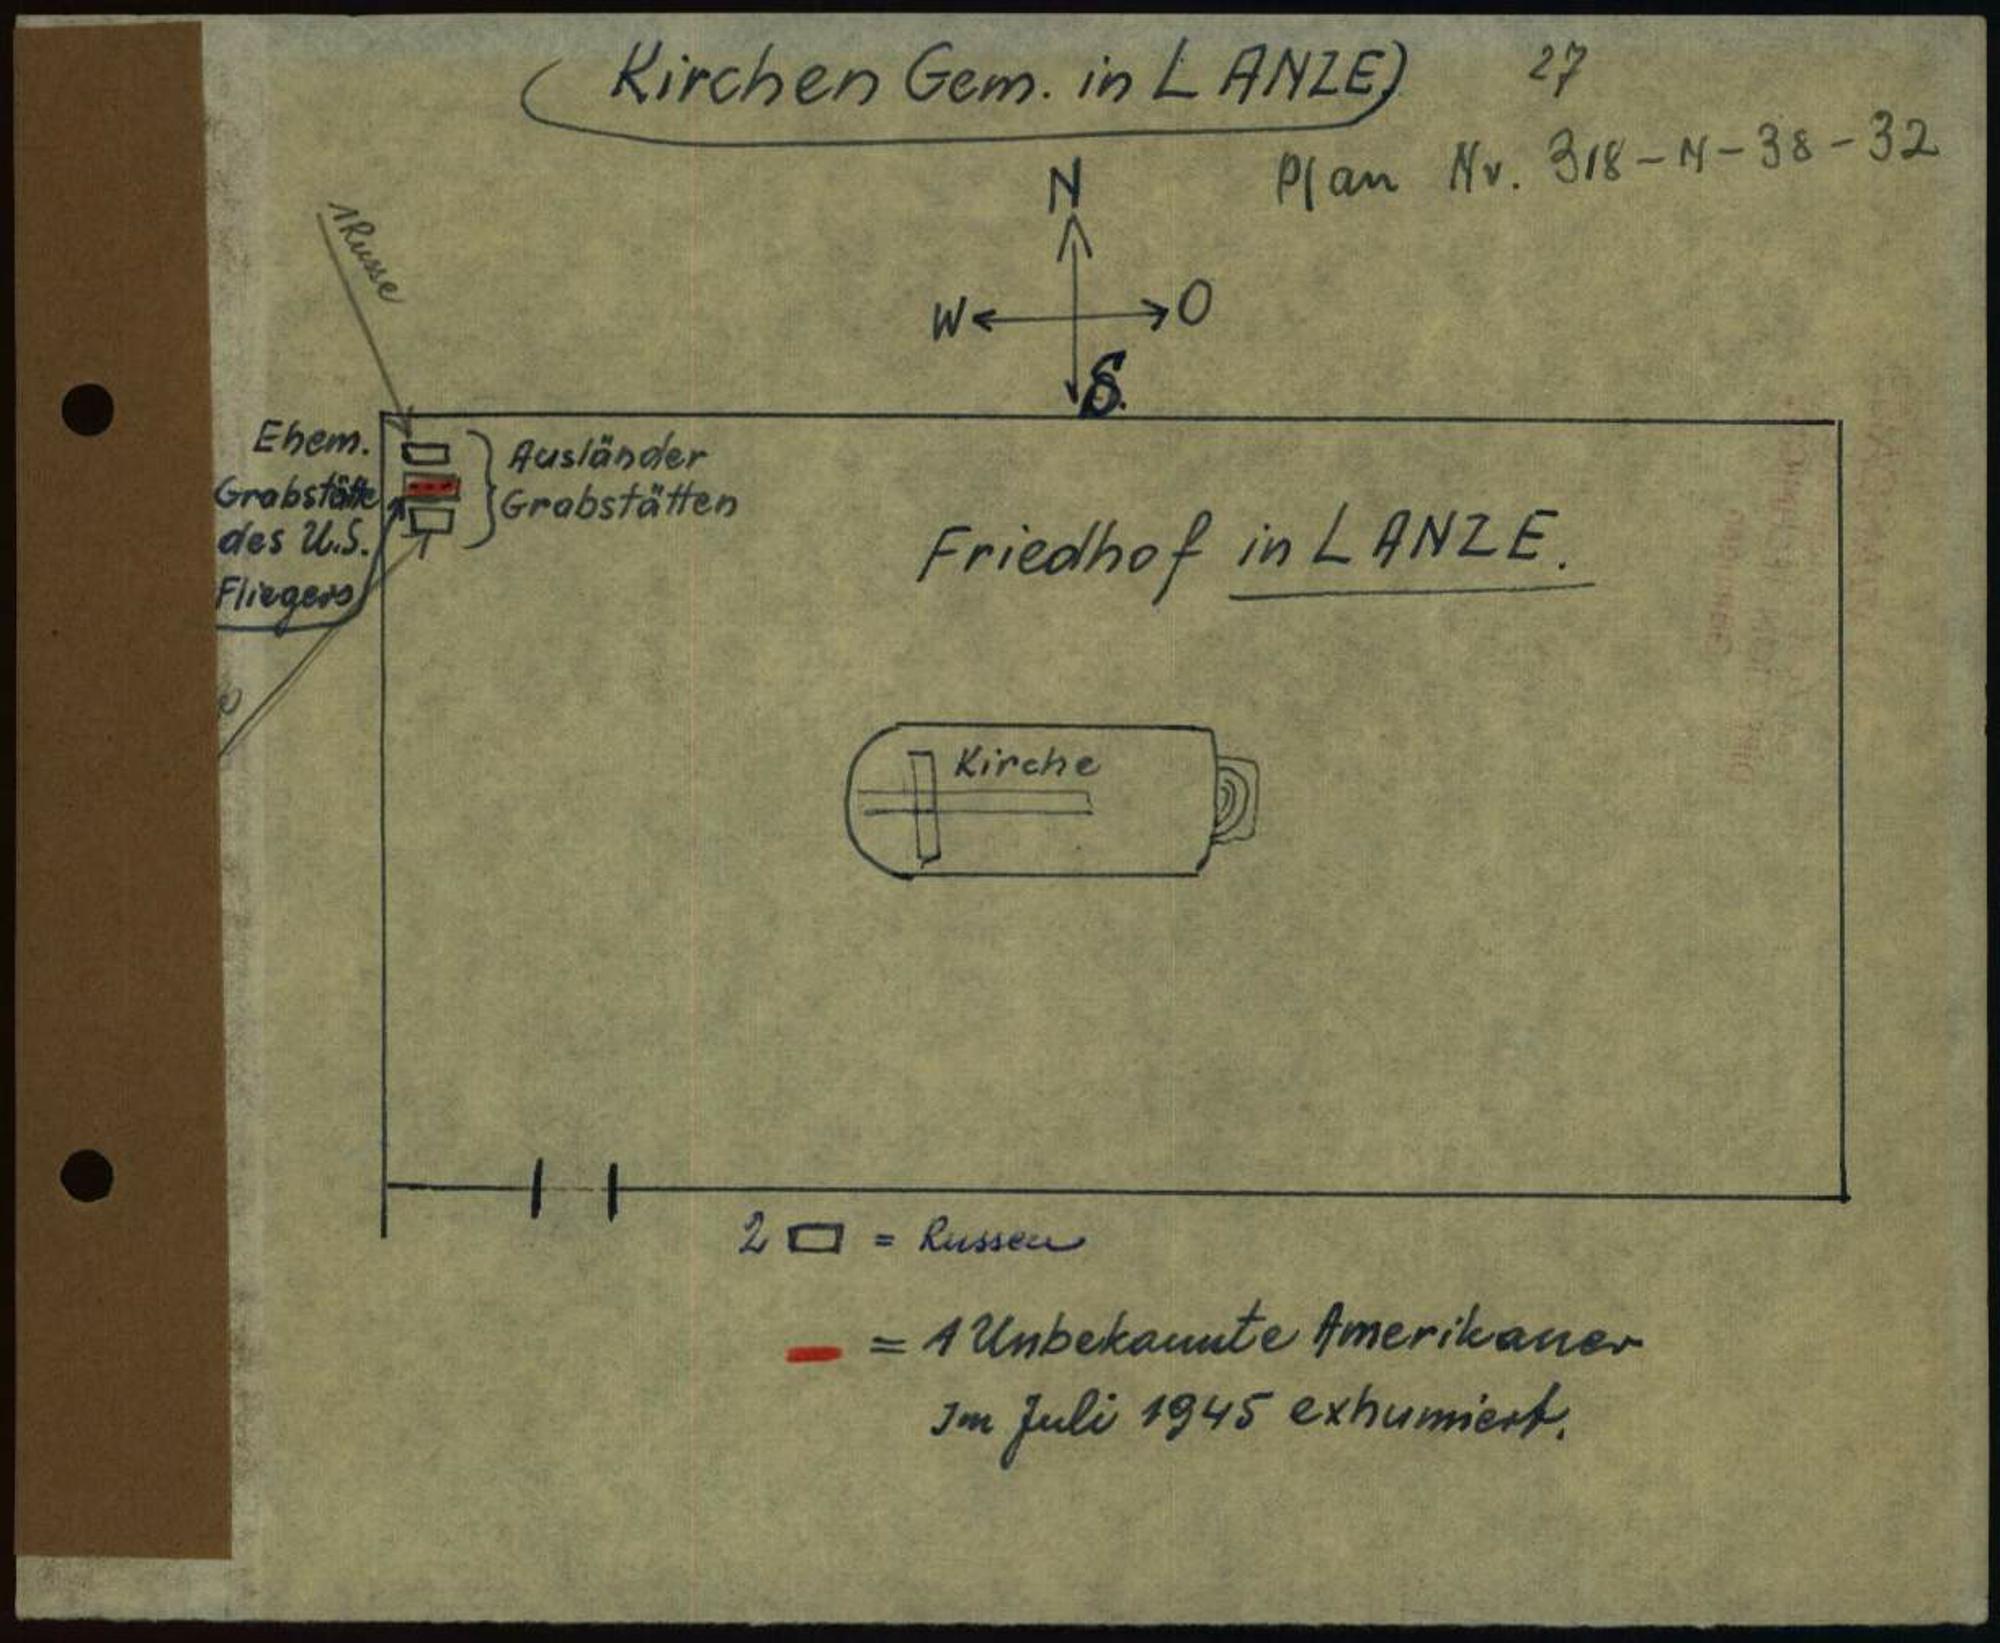 (Kirchen Gem. in LANZE)
27
Plan Nr. 318-N-38-32
N
W O
S.
1 Russe
Ehem.
Grabstätte
des U.S.
Fliegers
Ausländer
Grabstätten
Friedhof in LANZE.
Kirche
2 = Russen
= 1 Unbekannte Amerikaner
Im Juli 1945 exhumiert.